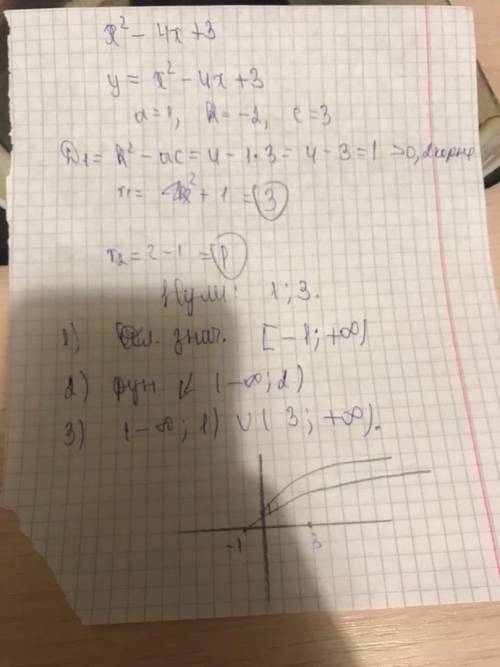 x² - 4x + 3
y = x² - 4x + 3
a = 1, k = -2, c = 3
D₁ = k² - ac = 4 - 1·3 = 4 - 3 = 1 > 0, 2 корня
x₁ = 2 + 1 = 3
x₂ = 2 - 1 = 1
Нули: 1; 3.
1) Обл. знач. [-1; +∞)
2) фун. ↙ (-∞; 2)
3) (-∞; 1) ∪ (3; +∞).
-1 3